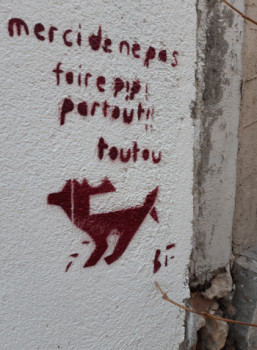 merci de ne pas
faire pipi
partout!!
toutou